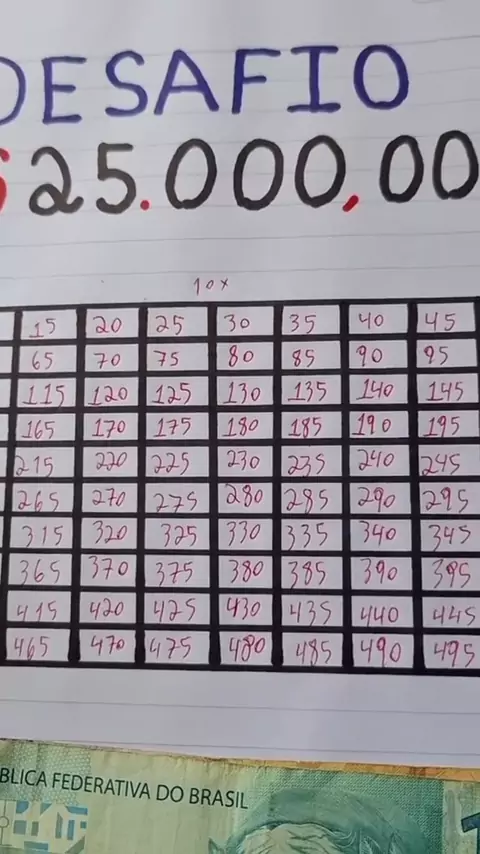 DESAFIO
$25.000,00
10x
15 20 25 30 35 40 45
65 70 75 80 85 90 95
115 120 125 130 135 140 145
165 170 175 180 185 190 195
215 220 225 230 235 240 245
265 270 275 280 285 290 295
315 320 325 330 335 340 345
365 370 375 380 385 390 395
415 420 425 430 435 440 445
465 470 475 480 485 490 495
BLICA FEDERATIVA DO BRASIL